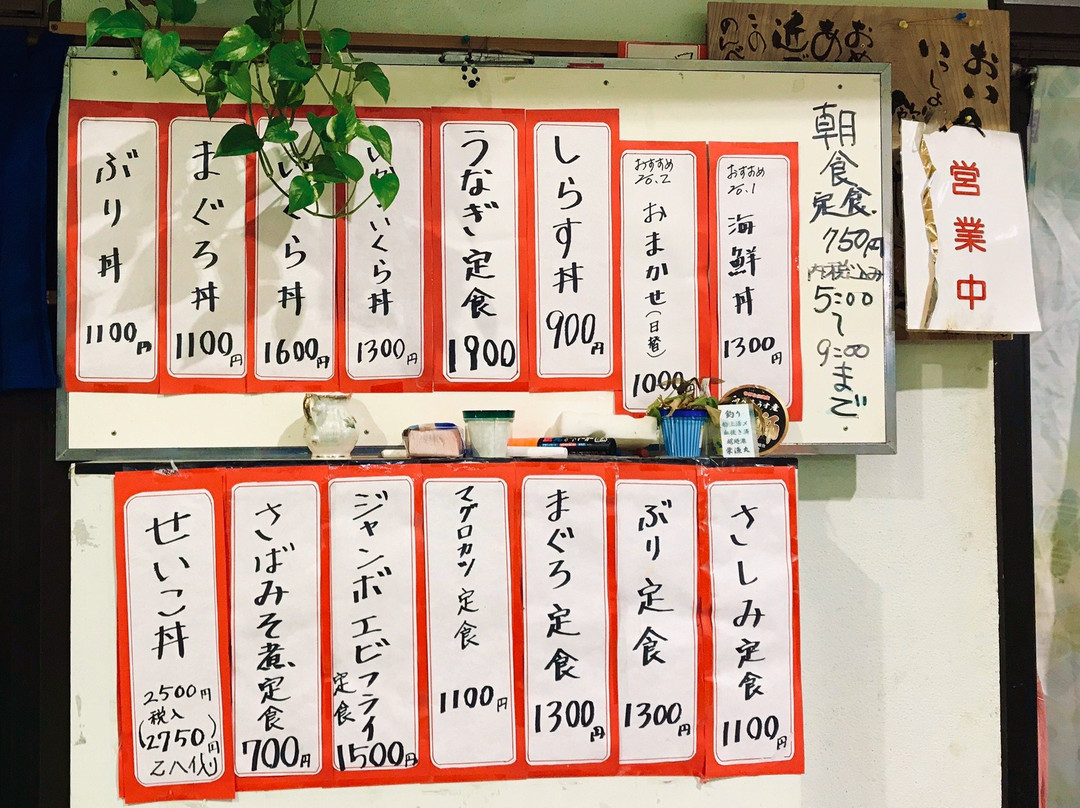 朝食定食
750円
内税込み
5:00〜
9:00まで
営業中
おすすめ
No.1
海鮮丼
1300円
おすすめ
No.2
おまかせ(日替)
1000
しらす丼
900円
うなぎ定食
1900
いくら丼
1300円
くら丼
1600円
まぐろ丼
1100円
ぶり丼
1100円
さしみ定食
1100円
ぶり定食
1300円
まぐろ定食
1300円
マグロカツ定食
1100円
ジャンボエビフライ
定食
1500円
さばみそ煮定食
700円
せいこ丼
2500円
税入
(2750)円
釣り